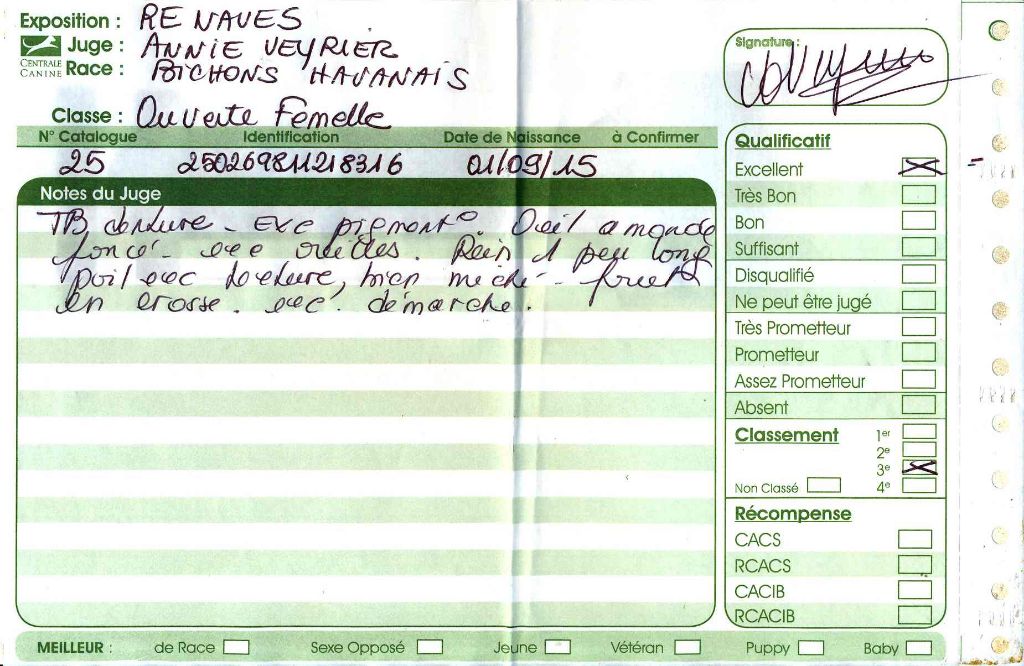 Exposition : RE NAVES
Juge : ANNIE VEYRIER
CENTRALE CANINE
Race : BICHONS HAVANAIS
Classe : Ouverte Femelle
Signature :
N° Catalogue Identification Date de Naissance à Confirmer
25 250269811218316 01/09/15
Notes du Juge
TB denture - exc pigmento. Oeil amande
foncé - exc oreilles. Rein 1 peu long
poil exc texture, bien - fouet
en crosse. exc. démarche.
Qualificatif
Excellent
Très Bon
Bon
Suffisant
Disqualifié
Ne peut être jugé
Très Prometteur
Prometteur
Assez Prometteur
Absent
Classement 1er
2e
3e
Non Classé 4e
Récompense
CACS
RCACS
CACIB
RCACIB
MEILLEUR : de Race Sexe Opposé Jeune Vétéran Puppy Baby